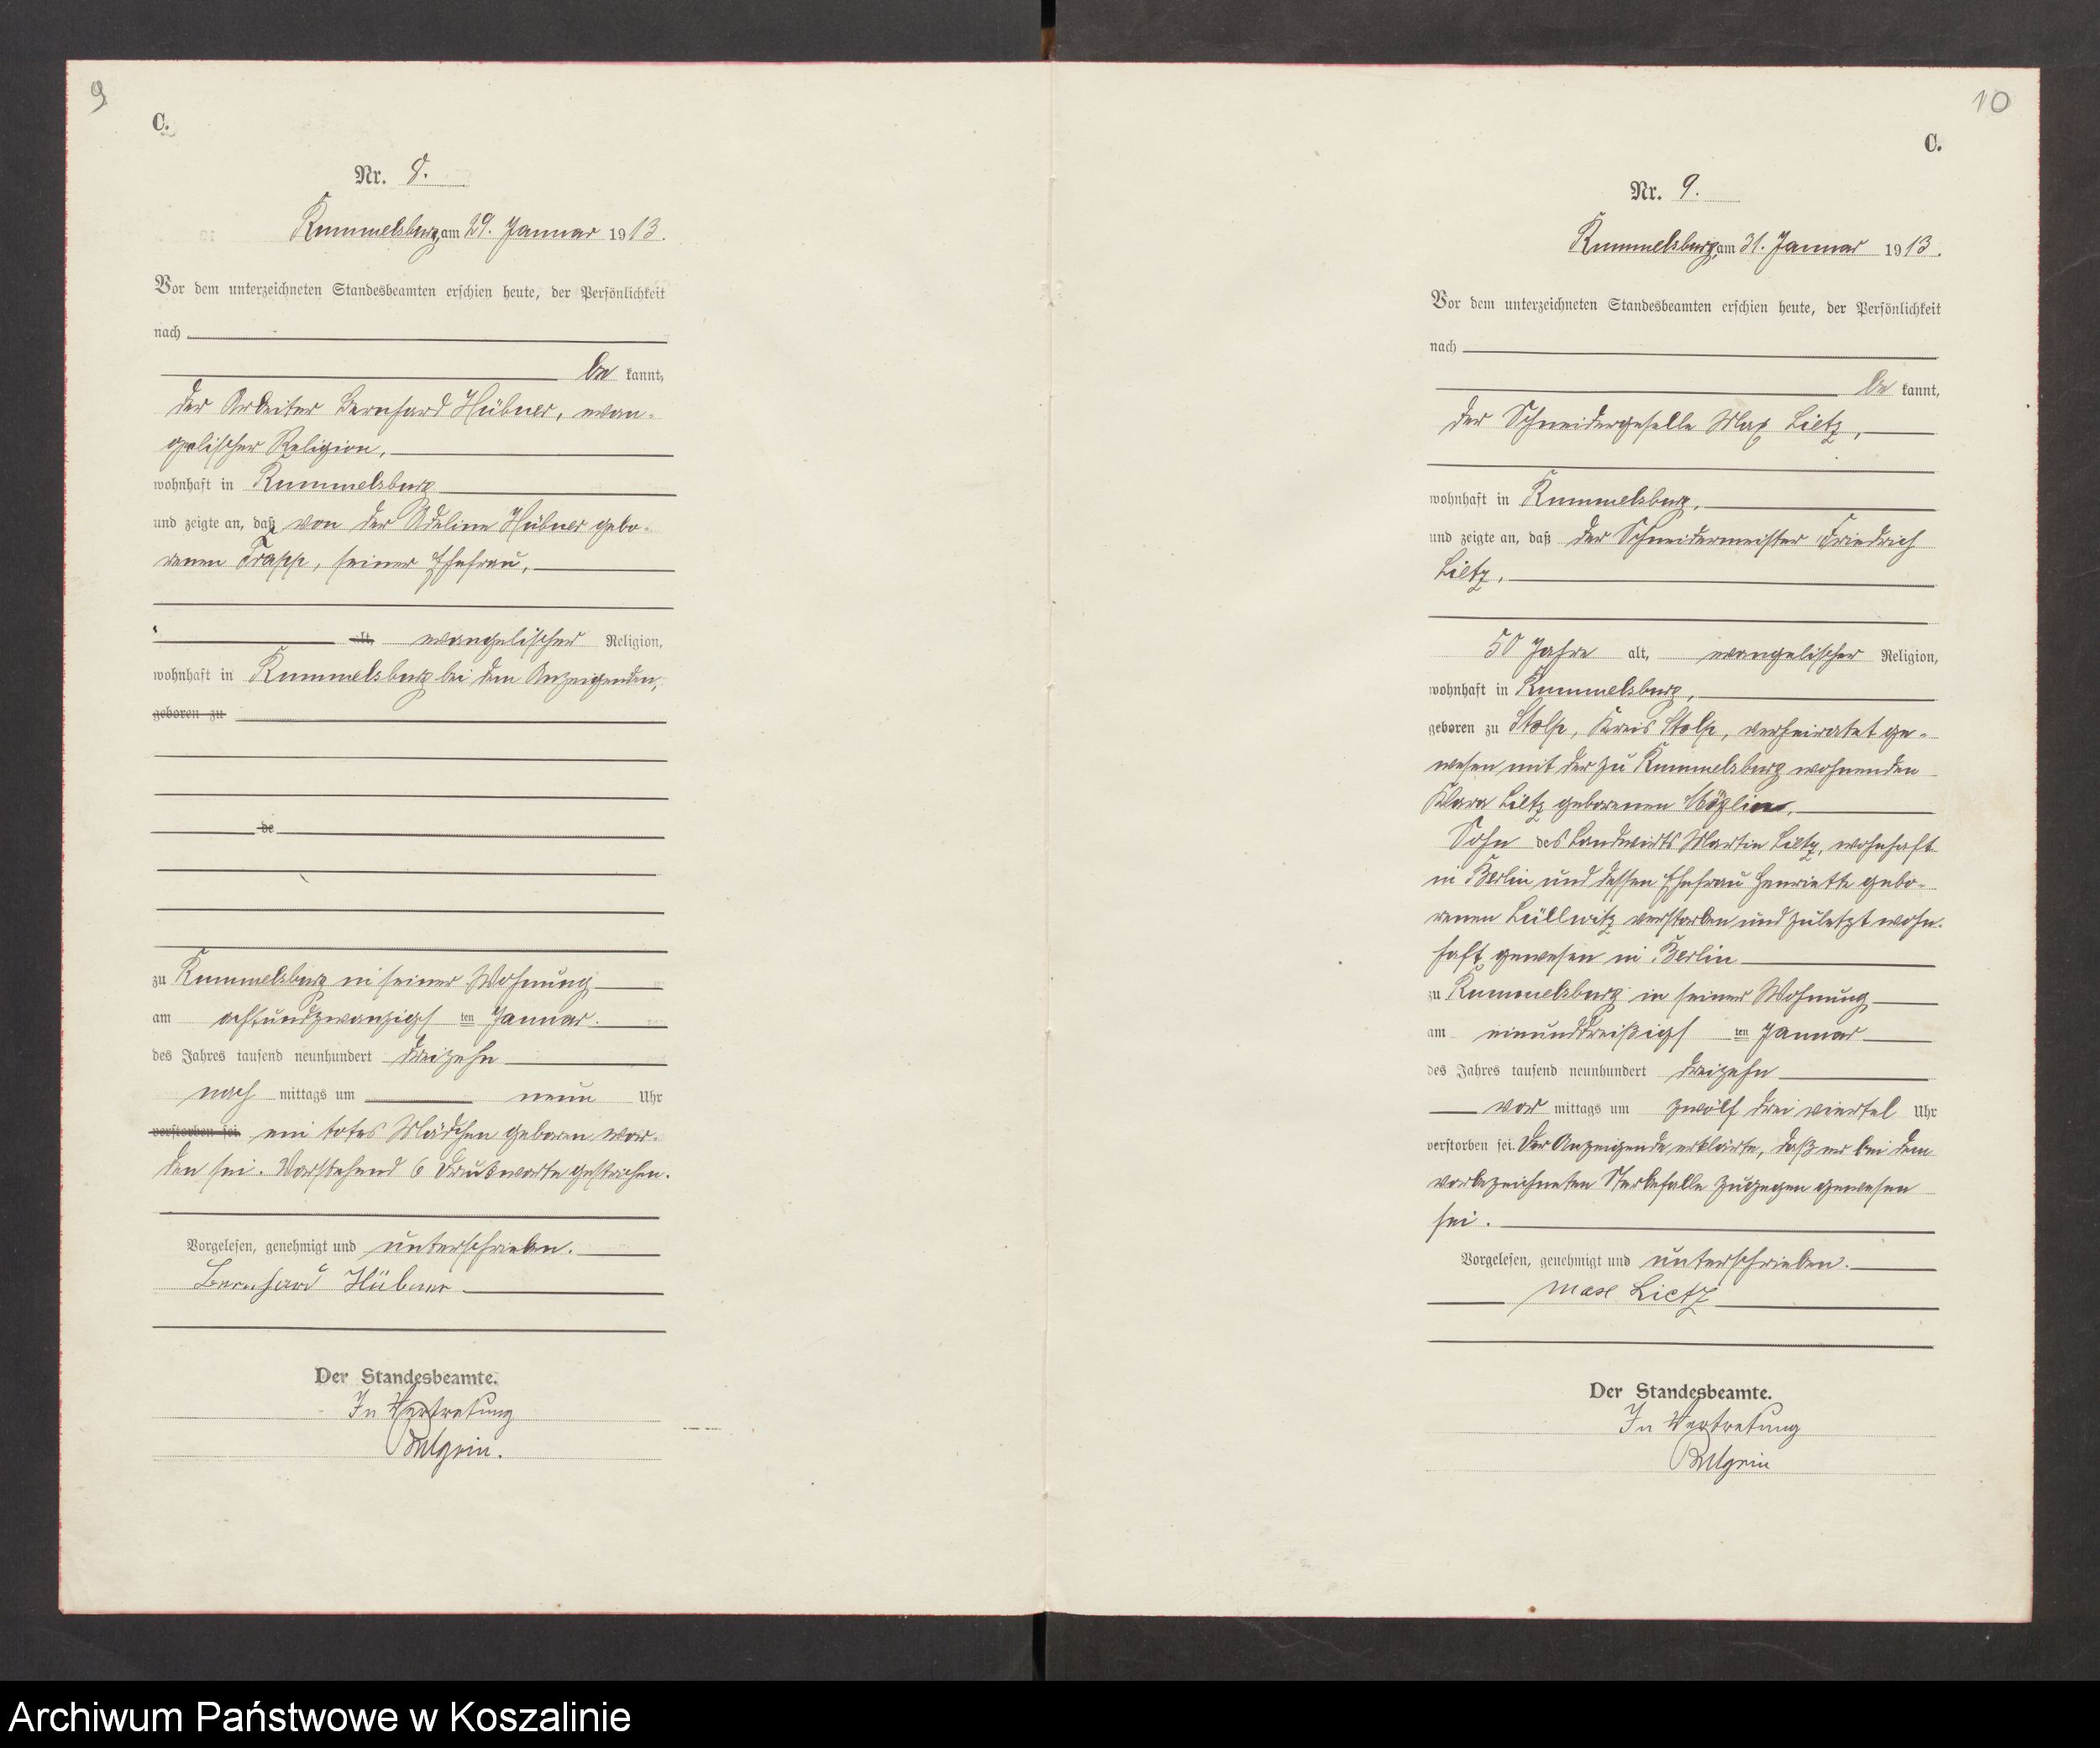 9
C.
Nr. 8.
Rummelsburg, am 29. Januar 1913.
Vor dem unterzeichneten Standesbeamten erschien heute, der Persönlichkeit
nach
be kannt,
der Arbeiter Bernhard Hübner, evan-
gelischer Religion,
wohnhaft in Rummelsburg
und zeigte an, daß von der Adeline Hübner gebo-
renen Trapp, seiner Ehefrau,
alt, evangelischer Religion,
wohnhaft in Rummelsburg bei dem Anzeigenden,
geboren zu
de
zu Rummelsburg in seiner Wohnung
am achtundzwanzigs ten Januar
des Jahres tausend neunhundert dreizehn
nach mittags um neun Uhr
verstorben sei ein totes Mädchen geboren wor-
den sei. Vorstehend 6 Druckworte gestrichen.
Vorgelesen, genehmigt und unterschrieben.
Bernhard Hübner
Der Standesbeamte.
In Vertretung
10
C.
Nr. 9.
Rummelsburg, am 31. Januar 1913.
Vor dem unterzeichneten Standesbeamten erschien heute, der Persönlichkeit
nach
be kannt,
der Schneidergeselle Max Lietz,
wohnhaft in Rummelsburg,
und zeigte an, daß der Schneidermeister Friedrich
Lietz,
50 Jahre alt, evangelischer Religion,
wohnhaft in Rummelsburg,
geboren zu Stolp, Kreis Stolp, verheiratet ge-
wesen mit der zu Rummelsburg wohnenden
Klara Lietz geborenen
Sohn des Landwirts Martin Lietz, wohnhaft
in Berlin und dessen Ehefrau Henriette gebo-
renen Lüllwitz verstorben und zuletzt wohn-
haft gewesen in Berlin
zu Rummelsburg in seiner Wohnung
am einunddreißigs ten Januar
des Jahres tausend neunhundert dreizehn
vor mittags um zwölf drei viertel Uhr
verstorben sei. Der Anzeigende erklärte, daß er bei dem
vorbezeichneten Sterbefalle zugegen gewesen
sei.
Vorgelesen, genehmigt und unterschrieben.
Max Lietz
Der Standesbeamte.
In Vertretung
Archiwum Państwowe w Koszalinie